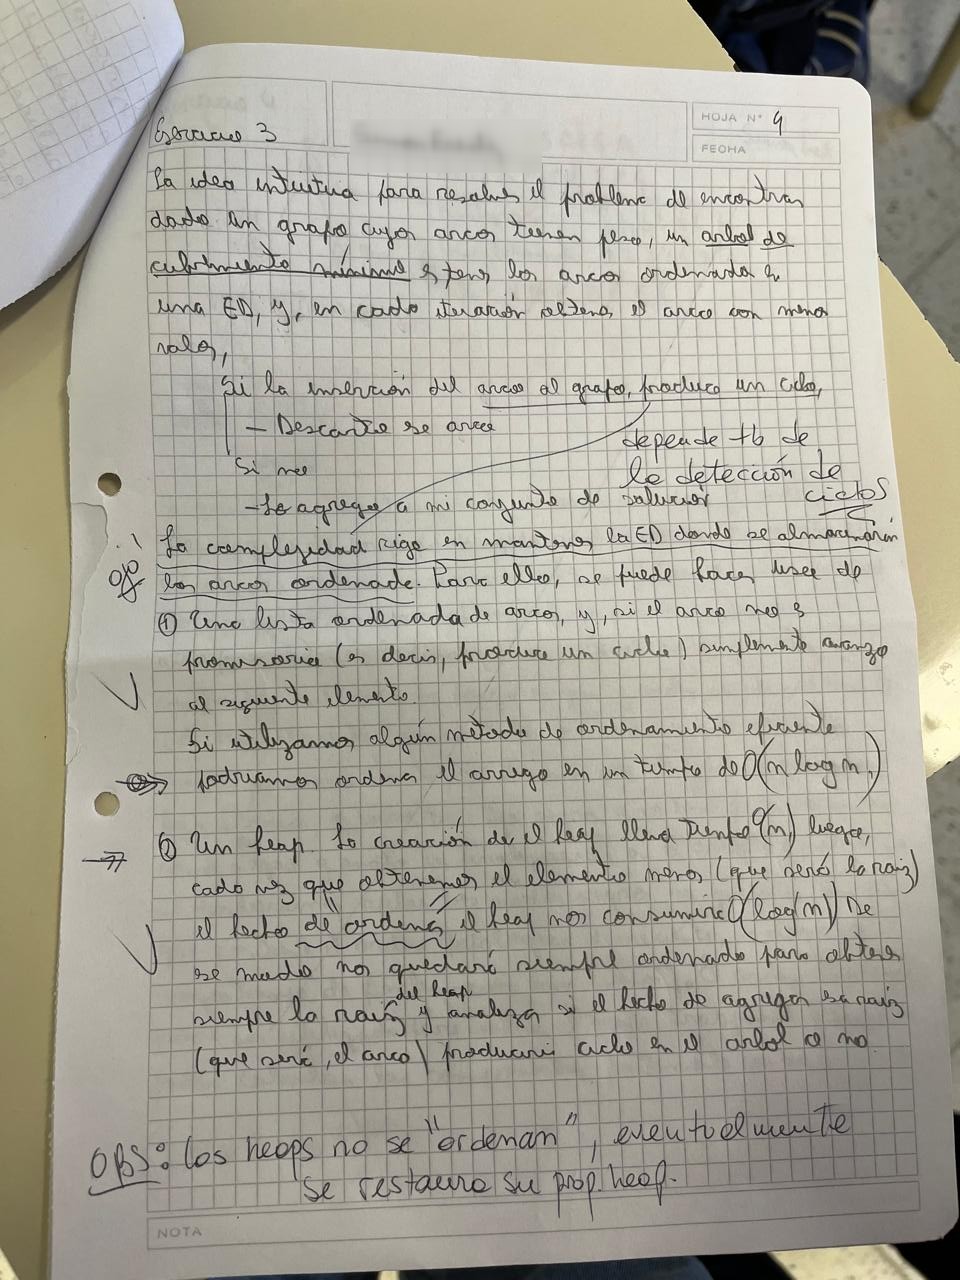 HOJA N° 4
FECHA
Ejercicio 3
La idea intuitiva para resolver el problema de encontrar
dado un grafo cuyos arcos tienen peso, un arbol de
cubrimiento mínimo es tener los arcos ordenados en
una ED, y, en cada iteración obtener el arco con menor
valor,
Si la inserción del arco al grafo, produce un ciclo,
- Descarto ese arco
depende tb de
la detección de
ciclos
Si no
- Lo agrego a mi conjunto de solución
ojo!
La complejidad rige en mantener la ED donde se almacenarán
los arcos ordenada. Para ello, se puede hacer uso de
① Una lista ordenada de arcos, y, si el arco no es
promisorio (es decir, produce un ciclo) simplemente avanzo
al siguiente elemento.
Si utilizamos algún método de ordenamiento eficiente
podriamos ordenar el arreglo en un tiempo de O(n log n)
② Un heap. La creación de el heap lleva tiempo O(n) luego,
cada vez que obtenemos el elemento menor (que será la raiz)
el hecho de "ordenar" el heap nos consumirá O(log(n)) De
ese modo nos quedará siempre ordenado para obtener
siempre la raíz del heap y analizar si el hecho de agregar esa raiz
(que será, el arco) producirá ciclo en el arbol o no.
OBS: los heaps no se "ordenan", eventualmente
se restaura su prop. heap.
NOTA